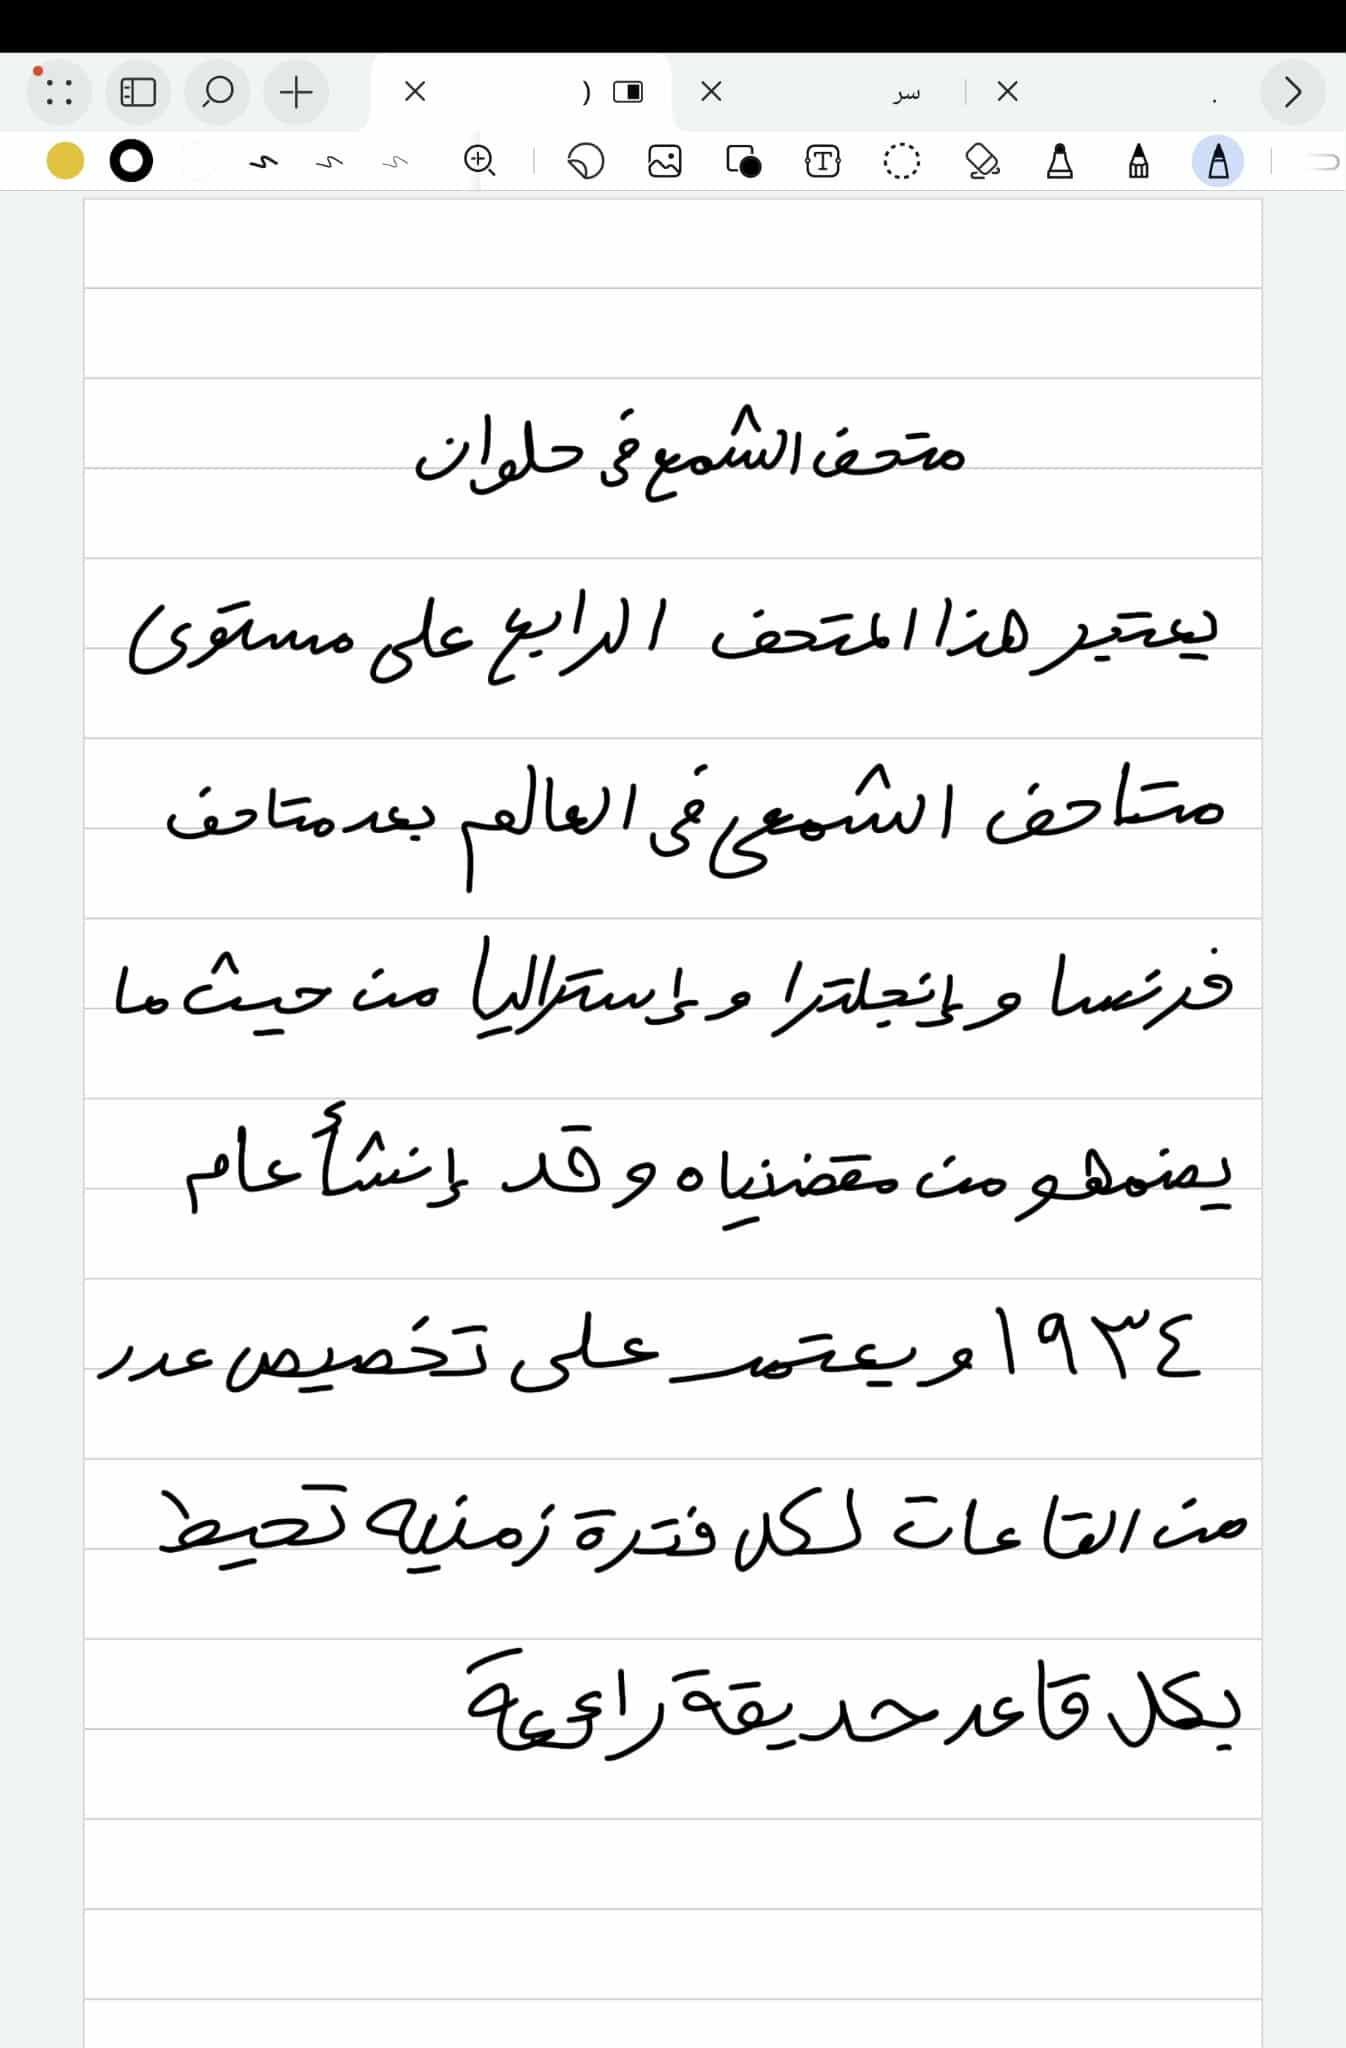 سر
متحف الشمع في حلوان
يعتبر هذا المتحف الرابع على مستوى
متاحف الشمع في العالم بعد متاحف
فرنسا و إنجلترا و إستراليا من حيث ما
يضمه من مقضنياه و قد إنشأ عام
١٩٣٤ و يعتمد على تخصيص عدد
من القاعات لكل فترة زمنيه تحيط
بكل قاعد حديقة رائعة